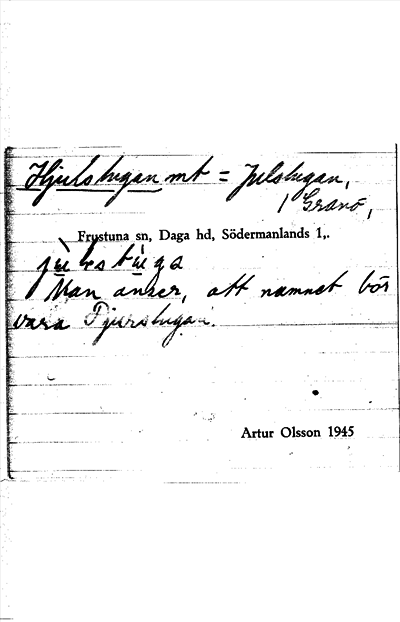 Hjulstugan mt = Julstugan,
/ Granö,
Frustuna sn, Daga hd, Södermanlands l,.
Man anser, att namnet bör
vara Djurstugan.
Artur Olsson 1945